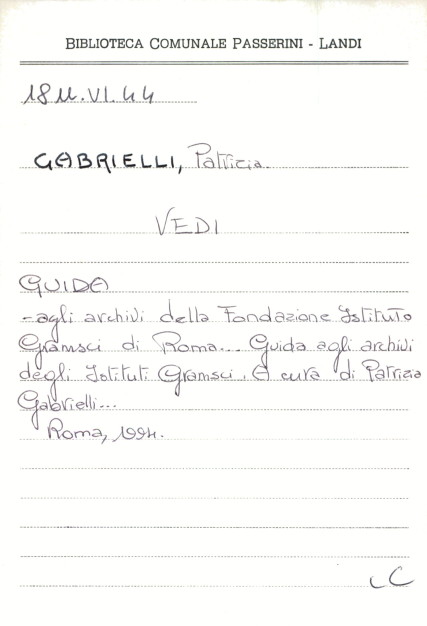 BIBLIOTECA COMUNALE PASSERINI - LANDI
18 U.VI.44
GABRIELLI, Patrizia.
VEDI
GUIDA
- agli archivi della Fondazione Istituto
Gramsci di Roma... Guida agli archivi
degli Istituti Gramsci. A cura di Patrizia
Gabrielli...
Roma, 1994.
LC